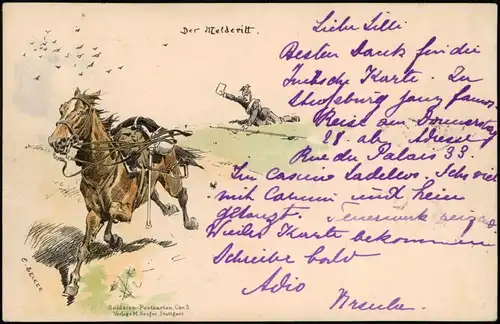 Der Melderitt.
Liebe Lilli
Besten Dank für die
hübsche Karte. In
Straßburg ganz famos.
Reise am Donnerstag
28 ab Adresse
Rue du Palais 33.
Im Casino tadellos. Sehr viel
mit und
getanzt. Feuerwerk
Karte bekommen
Schreibe bald
Adio
Ursula.
C. BECKER
Soldaten-Postkarten, Cav. 5.
Verlag v. M. Seeger, Stuttgart